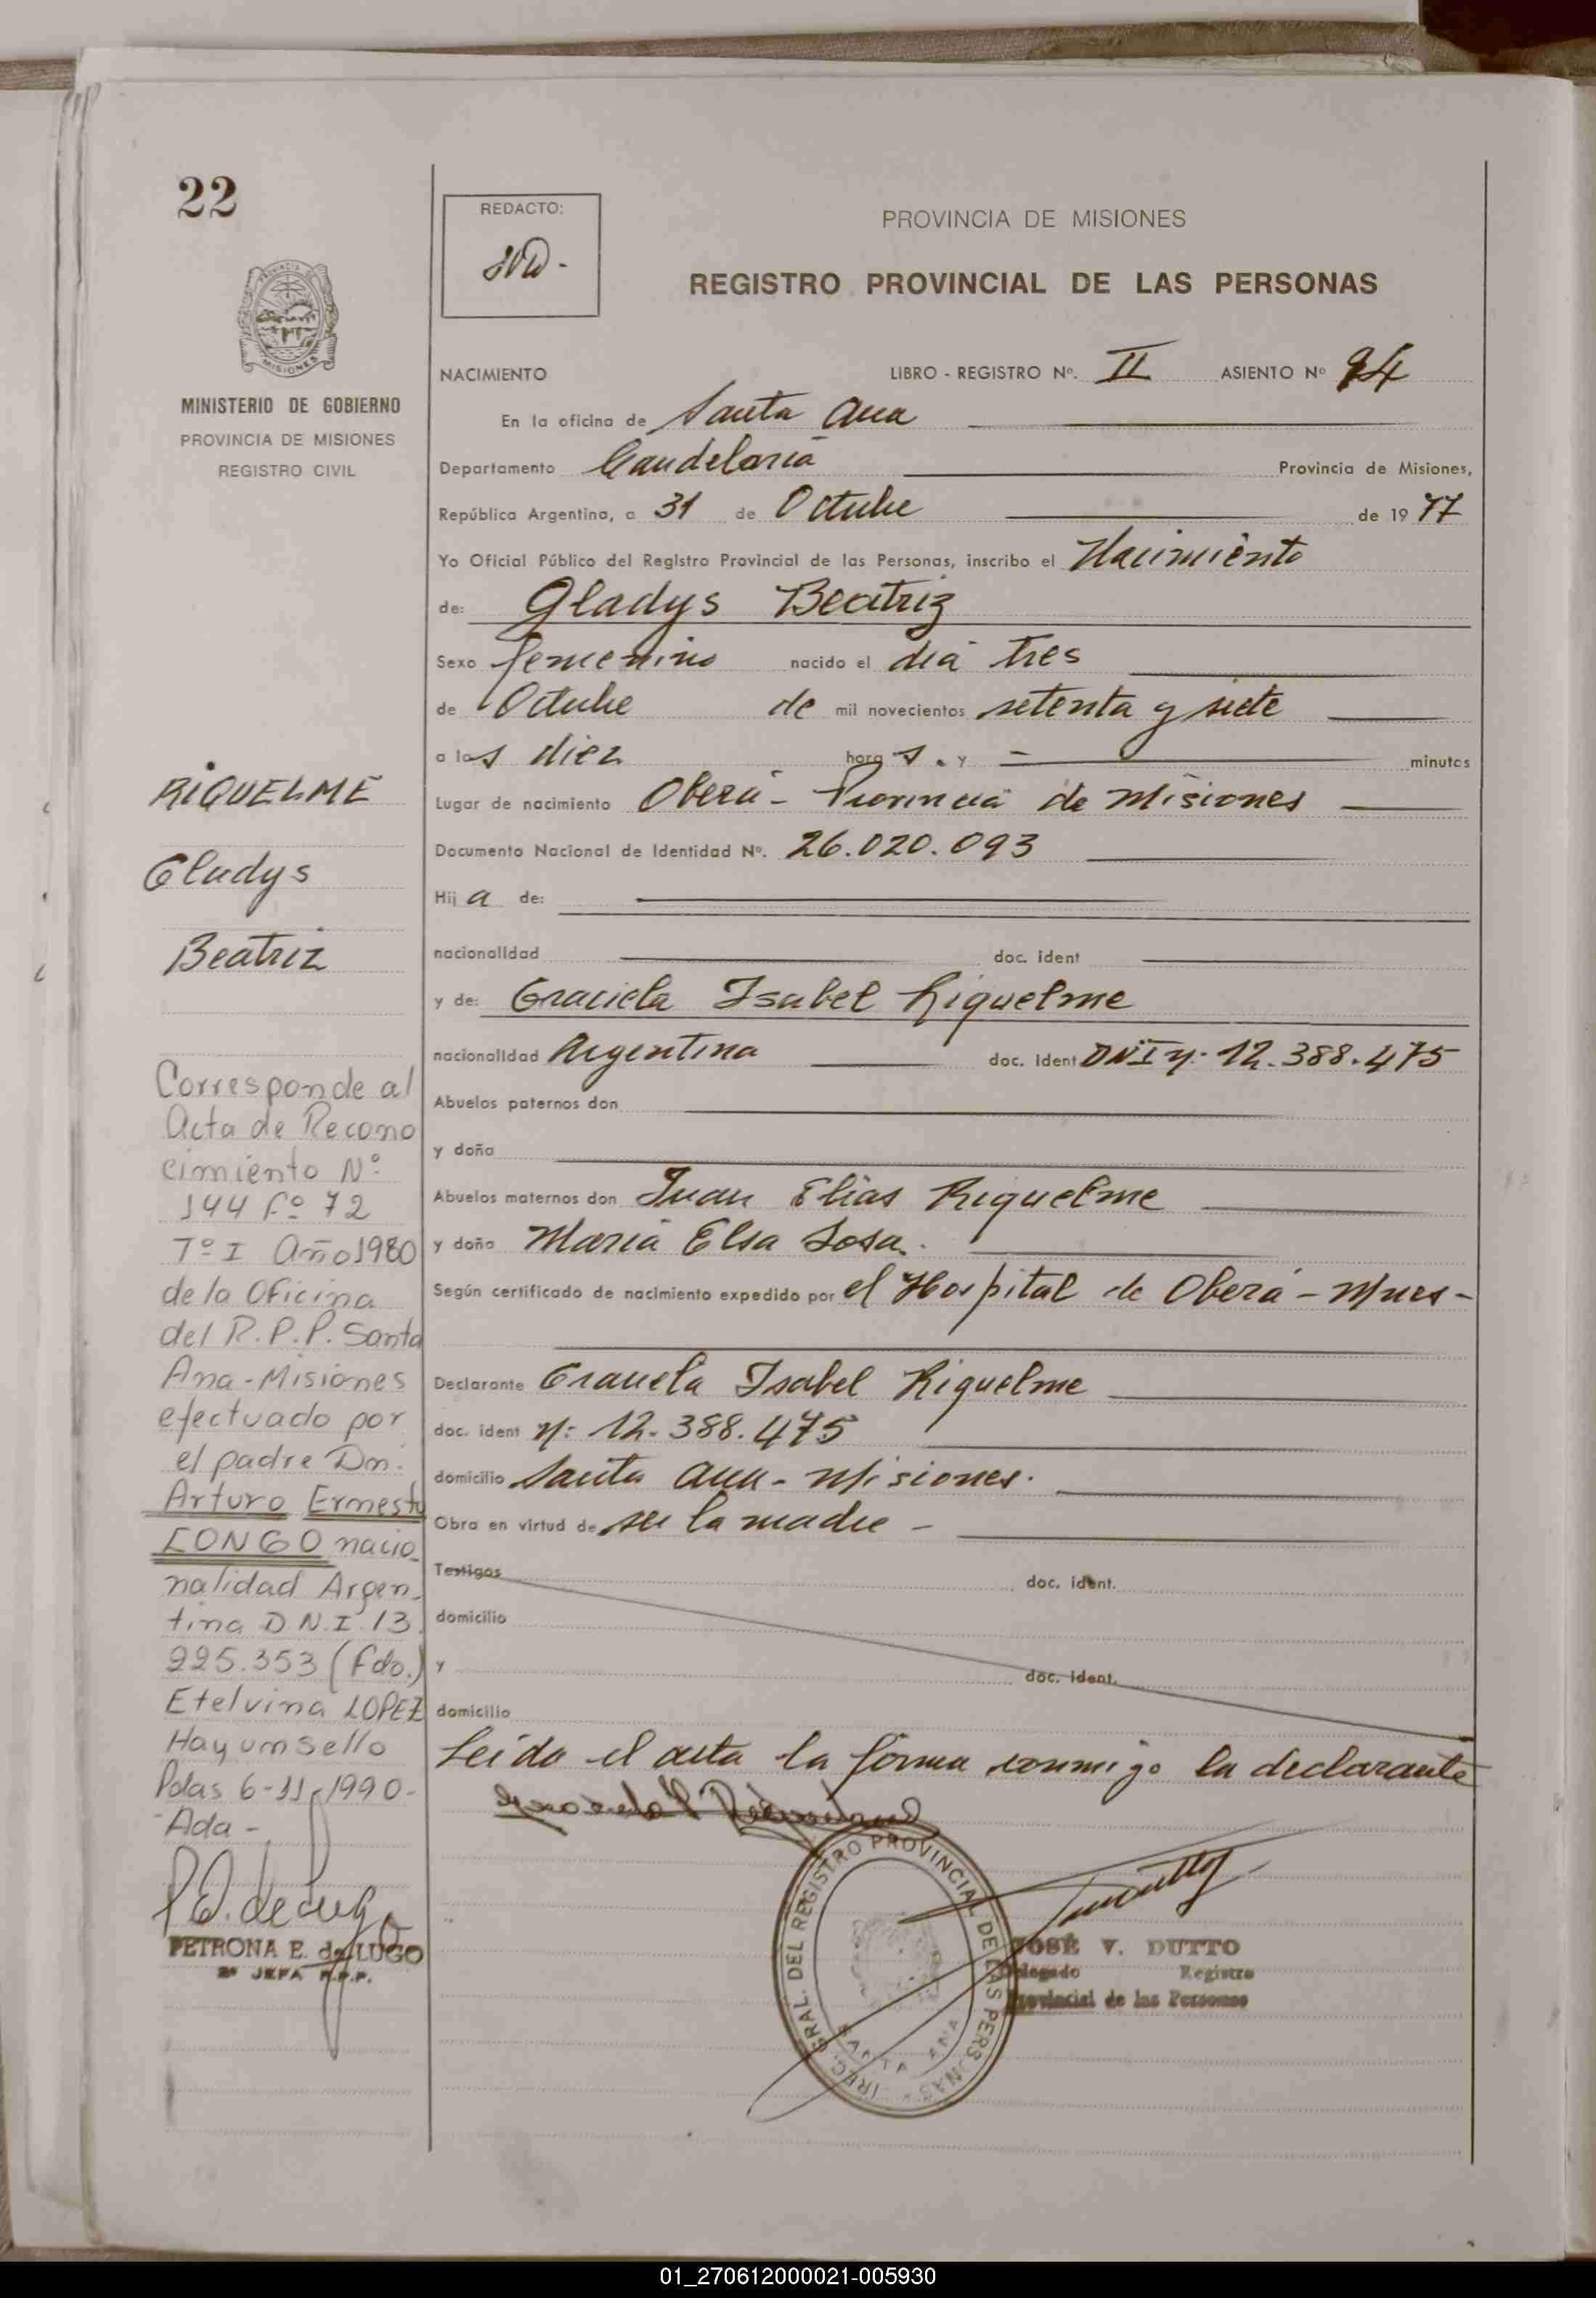 22
MINISTERIO DE GOBIERNO
PROVINCIA DE MISIONES
REGISTRO CIVIL
RIQUELME
Gladys
Beatriz
Corresponde al
Acta de Recono
cimiento Nº
144 Fº 72
Tº I Año 1980
de la Oficina
del R.P.P. Santa
Ana - Misiones
efectuado por
el padre Dn.
Arturo Ernesto
LONGO nacio_
nalidad Argen_
tina D.N.I. 13.
225.353 (Fdo.)
Etelvina LOPEZ
Hay um sello
Pdas 6-11-1990-
Ada -
PETRONA E. de LUGO
2ª JEFA R.P.P.
REDACTO:
PROVINCIA DE MISIONES
REGISTRO PROVINCIAL DE LAS PERSONAS
NACIMIENTO LIBRO - REGISTRO Nº. II ASIENTO Nº 94
En la oficina de Santa Ana
Departamento Candelaria Provincia de Misiones,
República Argentina, a 31 de Octubre de 1977
Yo Oficial Público del Registro Provincial de las Personas, inscribo el Nacimiento
de: Gladys Beatriz
Sexo femenino nacido el día tres
de Octubre de mil novecientos setenta y siete
a las diez horas. y - minutos
Lugar de nacimiento Oberá - Provincia de Misiones
Documento Nacional de Identidad Nº. 26.020.093
Hija de:
nacionalidad doc. ident
y de: Graciela Isabel Riquelme
nacionalidad Argentina doc. ident DNI nº 12.388.475
Abuelos paternos don
y doña
Abuelos maternos don Juan Elías Riquelme
y doña María Elsa Sosa.
Según certificado de nacimiento expedido por el Hospital de Oberá - Mnes -
Declarante Graciela Isabel Riquelme
doc. ident nº 12.388.475
domicilio Santa Ana - Misiones.
Obra en virtud de ser la madre -
Testigos doc. ident.
domicilio
y doc. ident.
domicilio
Leída el acta la firma conmigo la declarante
DIREC. GRAL. DEL REGISTRO PROVINCIAL DE LAS PERSONAS
SANTA ANA
JOSÉ V. DUTTO
Delegado Registro
Provincial de las Personas
01_270612000021-005930